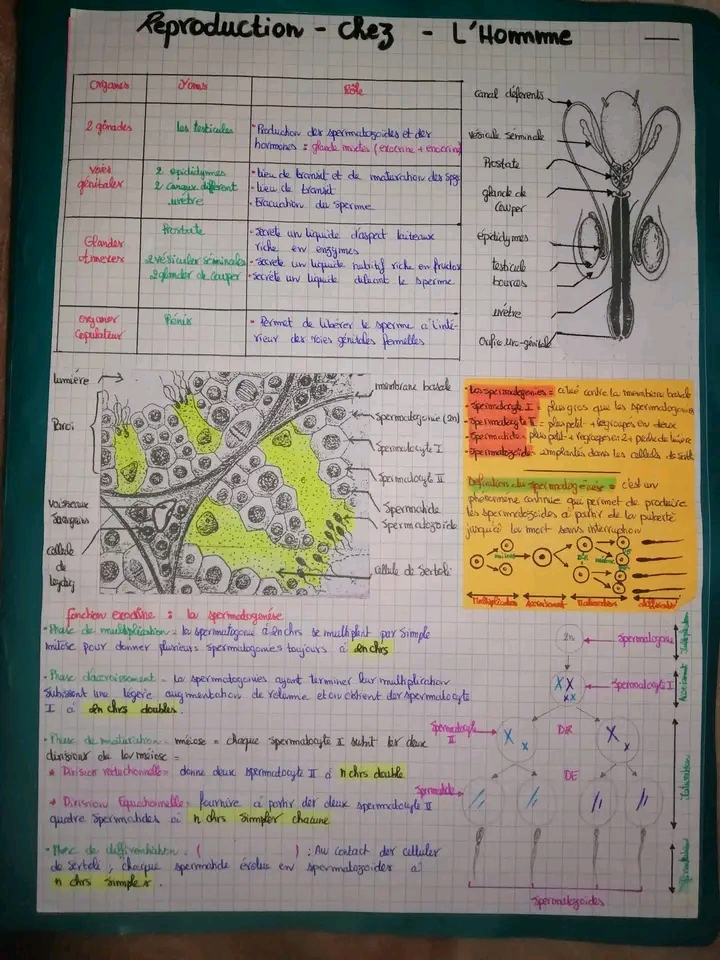 Reproduction - chez - L'Homme
Organes
Noms
Rôle
2 gônades
les testicules
• Production des spermatozoïdes et des
hormones = glande mixtes (exocrine + enocrine
voies
génitales
2 epididymes
2 canaux différent
urètre
• lieu de transit et de maturation des Spz
• lieu de transit
• Evacuation du sperme
Glandes
Annexes
Prostate
2 vésicules séminales
2 glandes de cowper
• secrète un liquide d'aspect laiteux
riche en enzymes
• secrète un liquide nutritif riche en fructos
• secrète un liquide diluant le sperme
organes
Copulateur
Pénis
• Permet de libérer le sperme à l'inté-
rieur des voies génitales femelles
canal déferents
vésicule séminale
Prostate
glande de
Cowper
épididymes
testicule
bourses
urètre
Orifice uro-génital
lumière
Paroi
vaisseaux
Sanguins
cellule
de
leydig
membrane basale
Spermatogonie (2n)
Spermatocyte I
Spermatocyte II
Spermatide
Spermatozoïde
cellule de Sertoli
• Les spermatogonies =
• Spermatocyte I = plus gros que les spermatogonies
• Spermatocyte II = plus petit + regroupés en deux
• Spermatides
• Spermatozoïde = implantés dans les cellules de sertoli
Definition du spermatogénèse = c'est un
phénomène continue que permet de produire
les spermatozoïdes à partir de la puberté
jusqu'à la mort sans interruption
Multiplication
Accroissement
Maturation
fonction exocrine : la spermatogénèse
• Phase de multiplication = la spermatogonie à 2n chrs se multiplient par simple
mitose pour donner plusieurs spermatogonies toujours à 2n chrs
• Phase d'accroissement = les spermatogonies ayant terminer leur multiplication
Subissent une légère augmentation de volume et on obtient des spermatocyte
I à 2n chrs doubles.
• Phase de maturation = méiose = chaque spermatocyte I subit les deux
divisions de la meiose =
* Division réductionnelle = donne deux spermatocyte II à n chrs double
* Division Equationnelle = fournire à partir des deux spermatocyte II
quatre spermatides à n chrs simples chacune
• Phase de différentiation = ( ) : Au contact des cellules
de Sertoli, chaque spermatide évolue en spermatozoïdes à
n chrs simples.
2n
Spermatogonie
Spermatocyte I
Spermatocyte
II
DR
DE
Spermatide
Spermatozoïdes
Multiplication
Accroissement
Maturation